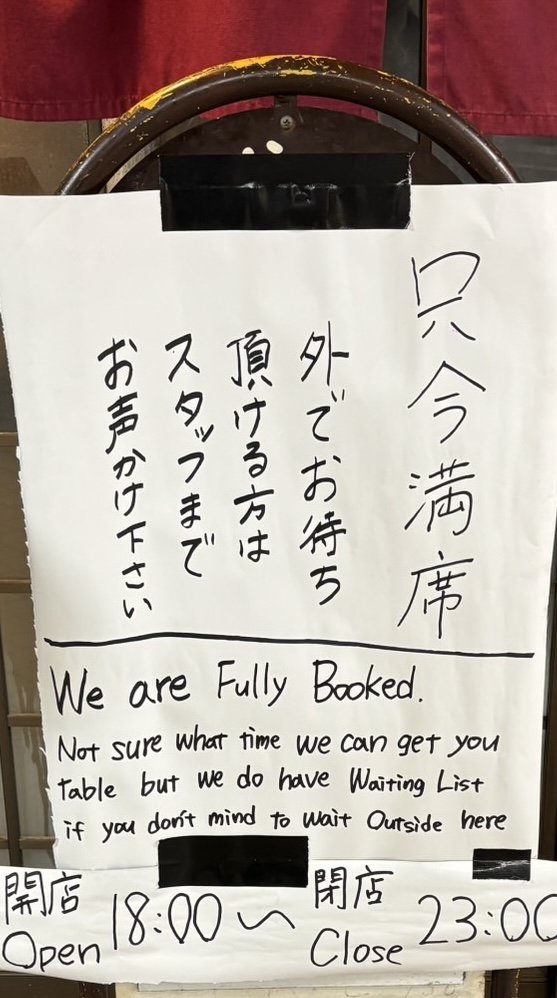 只今満席
外でお待ち
頂ける方は
スタッフまで
お声かけ下さい
We are Fully Booked.
Not sure what time we can get you
table but we do have Waiting List
if you don't mind to wait Outside here
開店 18:00〜 閉店 23:00
Open Close